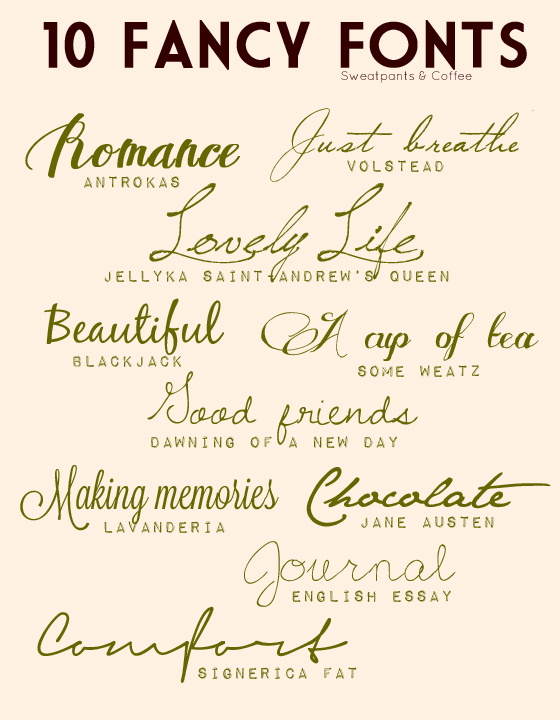 10 FANCY FONTS
Sweatpants & Coffee
Romance
ANTROKAS
Just breathe
VOLSTEAD
Lovely Life
JELLYKA SAINT-ANDREW'S QUEEN
Beautiful
BLACKJACK
A cup of tea
SOME WEATZ
Good friends
DAWNING OF A NEW DAY
Making memories
LAVANDERIA
Chocolate
JANE AUSTEN
Journal
ENGLISH ESSAY
Comfort
SIGNERICA FAT